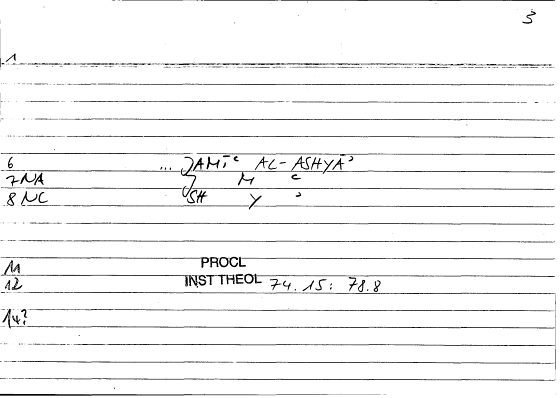 3
1
6 ... JAMĪʿ AL-ASHYĀʾ
7 NA M ʿ
8 NC SH Y ʾ
11 PROCL
12 INST THEOL 74.15: 78.8
14?